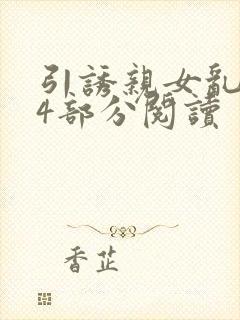 引誘親女亂
4部分閱讀
香芷